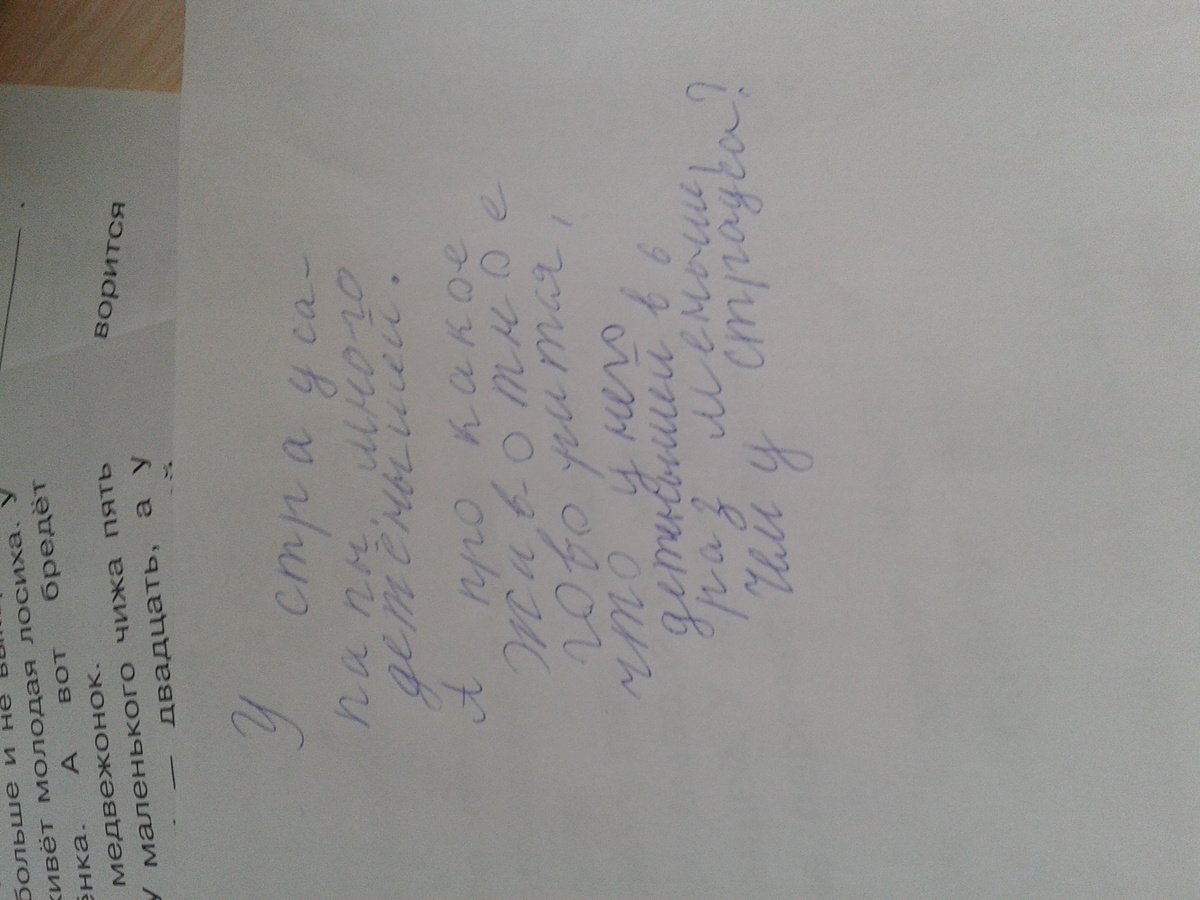 больше и не
живёт молодая лосиха. У
ёнка. А вот бредёт
медвежонок. ворится
у маленького чижа пять
— двадцать, а у
У страуса-
папы много
детёнышей.
А про какое
животное
говорится,
что у него
детёнышей в 6
раз меньше,
чем у страуса?